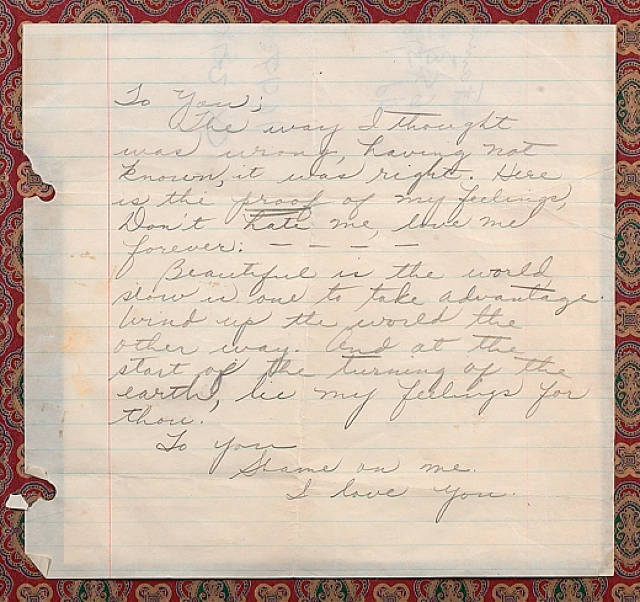 To You;
The way I thought
was wrong, having not
known, it was right. Here
is the proof of my feelings,
Don't hate me, love me
forever: — — — —
Beautiful is the world
slow is one to take advantage.
Wind up the world the
other way. And at the
start of the turning of the
earth, lie my feelings for
thou.
To you
Shame on me.
I love you.